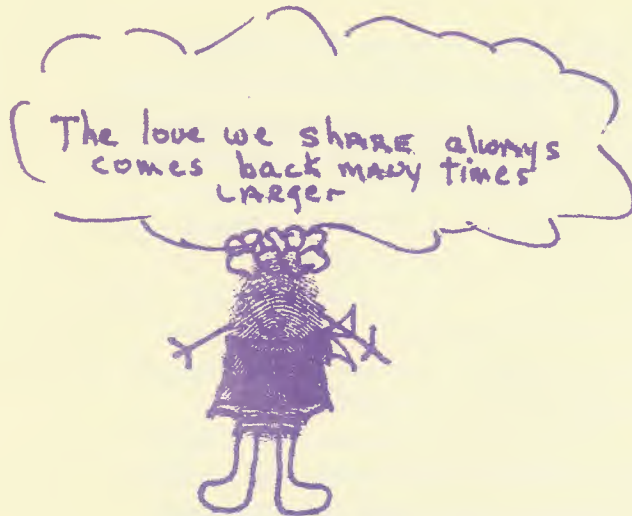 The love we SHARE always
comes back MANY times
LARger